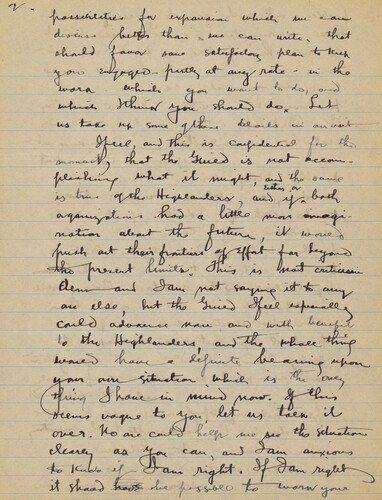 2.
possibilities for expansion which we can
discuss better than we can write, that
should favor some satisfactory plan to keep
you engaged - partly at any rate - in the
work which you want to do, and
which I think you should do. Let
us take up some of these details in
I feel, and this is confidential for the
moment, that the Guild is not accom-
plishing what it might, and the same
is true of the Highlanders, and if either or both
organizations had a little more imagi-
nation about the future, it would
push out their frontiers of effort far beyond
the present limits. This is not criticism
and I am not saying it to any
one else, but the Guild I feel especially
could advance more and with benefit
to the Highlanders, and the whole thing
would have a definite bearing upon
your own situation which is the only
thing I have in mind now. If this
seems vague to you, let us talk it
over. No one could help me see the situation
clearly as you can, and I am anxious
to know if I am right. If I am right
it should be possible to work your